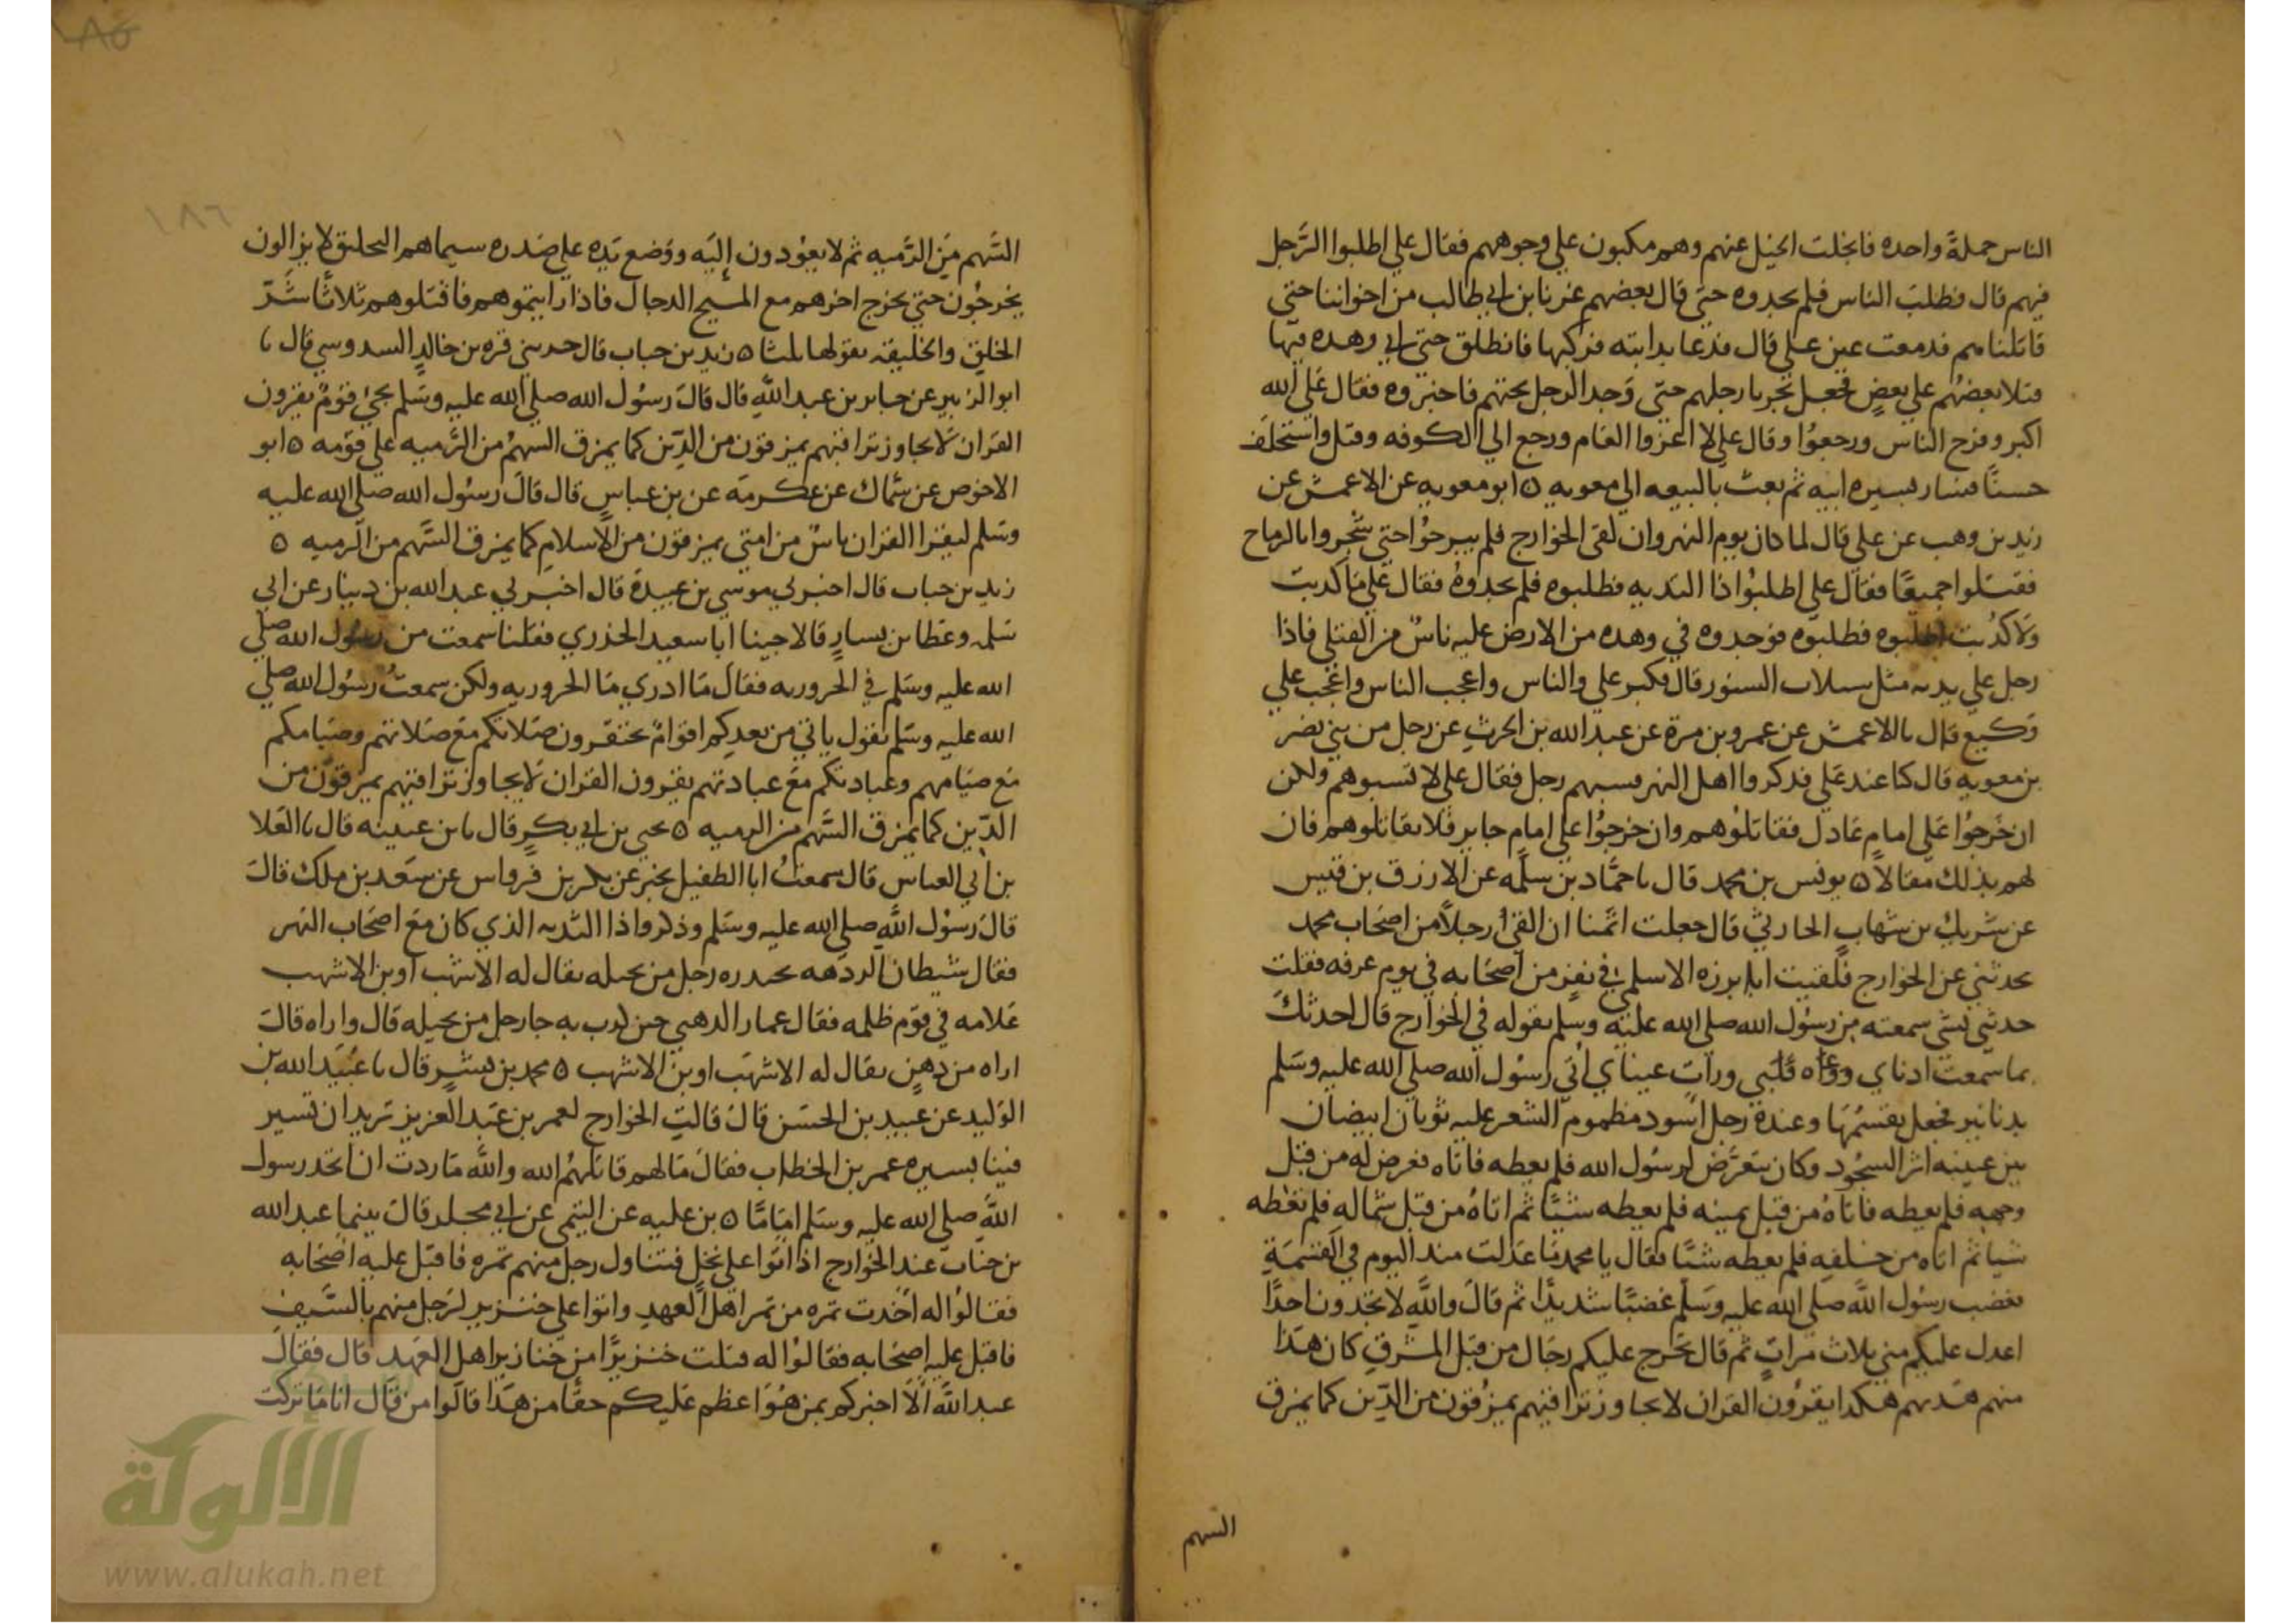 الناس حملة واحده فانجلت الخيل عنهم وهم مكبون على وجوههم فقال علي اطلبوا الرجل
فيهم قال فطلب الناس فلم يجدوه حتى قال بعضهم غرنا بن ابي طالب من اخواننا حتى
قاتلناهم فدمعت عين علي قال فدعا بدابته فركبها فانطلق حتى اتى وهده فيها
قتلا بعضهم على بعض فجعل يجر بارجلهم حتى وجد الرجل تحتهم فاخبروه فقال علي الله
اكبر وفرح الناس ورجعوا وقال علي لا اغزوا العام ورجع الي الكوفه وقتل واستخلف
حسنا فسار بسيره ابيه ثم بعث بالبيعه الي معويه ٥ ابو معويه عن الاعمش عن
زيد بن وهب عن علي قال لما كان يوم النهروان لقي الخوارج فلم يبرحوا حتى شجروا بالرماح
فقتلوا جميعا فقال علي اطلبوا ذا الثديه فطلبوه فلم يجدوه فقال علي ما كذبت
ولا كذبت اطلبوه فطلبوه فوجدوه في وهده من الارض عليه ناس من القتلى فاذا
رجل على يديه مثل سبلات السنور قال فكبر علي والناس واعجب الناس واعجب علي
وكيع قال نا الاعمش عن عمرو بن مرة عن عبد الله بن الحرث عن رجل من بني نضر
بن معويه قال كنا عند علي فذكروا اهل النهر فسبهم رجل فقال علي لا تسبوهم ولكن
ان خرجوا على امام عادل فقاتلوهم وان خرجوا على امام جاير فلا تقاتلوهم فان
لهم بذلك مقالا ٥ يونس بن محمد قال نا حماد بن سلمه عن الازرق بن قيس
عن شريك بن شهاب الحارثي قال جعلت اتمنا ان القى رجلا من اصحاب محمد
يحدثني عن الخوارج فلقيت ابا برزه الاسلمي في نفر من اصحابه في يوم عرفه فقلت
حدثني بشي سمعته من رسول الله صلى الله عليه وسلم يقوله في الخوارج قال احدثك
بما سمعت اذناي ووعاه قلبي ورات عيناي اتي رسول الله صلى الله عليه وسلم
بدنانير فجعل يقسمها وعنده رجل اسود مطموم الشعر عليه ثوبان ابيضان
بين عينيه اثر السجود وكان يتعرض لرسول الله فلم يعطه فاتاه فعرض له من قبل
وجهه فلم يعطه فاتاه من قبل يمينه فلم يعطه شيئا ثم اتاه من قبل شماله فلم يعطه
شيا ثم اتاه من خلفه فلم يعطه شيا فقال يا محمد ما عدلت منذ اليوم في القسمة
فغضب رسول الله صلى الله عليه وسلم غضبا شديدا ثم قال والله لا تجدون احدا
اعدل عليكم مني ثلاث مرات ثم قال يخرج عليكم رجال من قبل المشرق كان هذا
منهم هديهم هكذا يقرون القران لا يجاوز تراقيهم يمرقون من الدين كما يمرق
السهم
١٨٥
١٨٦
السهم من الرميه ثم لا يعودون إليه ووضع يده على صدره سيماهم التحليق لا يزالون
يخرجون حتى يخرج اخرهم مع المسيح الدجال فاذا رايتموهم فاقتلوهم ثلاثا شر
الخلق والخليقه يقولها ثلثا ٥ زيد بن حباب قال حدثني قره بن خالد السدوسي قال نا
ابو الزبير عن جابر بن عبد الله قال قال رسول الله صلى الله عليه وسلم يجئ قوم يقرون
القران لا يجاوز تراقيهم يمرقون من الدين كما يمرق السهم من الرميه على فوقه ٥ ابو
الاحوص عن سماك عن عكرمه عن بن عباس قال قال رسول الله صلى الله عليه
وسلم ليقرا القران ناس من امتي يمرقون من الاسلام كما يمرق السهم من الرميه ٥
زيد بن حباب قال اخبرني موسى بن عبيدة قال اخبرني عبد الله بن دينار عن ابي
سلمه وعطا بن يسار قالا جينا ابا سعيد الخذري فقلنا سمعت من رسول الله صلى
الله عليه وسلم في الحروريه فقال ما ادري ما الحروريه ولكن سمعت رسول الله صلى
الله عليه وسلم يقول ياتي من بعدكم اقوام تحتقرون صلاتكم مع صلاتهم وصيامكم
مع صيامهم وعبادتكم مع عبادتهم يقرون القران لا يجاوز تراقيهم يمرقون من
الدين كما يمرق السهم من الرميه ٥ يحيى بن ابي بكر قال نا بن عيينه قال نا العلا
بن ابي العباس قال سمعت ابا الطفيل يخبر عن بكر بن قرواس عن سعد بن ملك قال
قال رسول الله صلى الله عليه وسلم وذكروا ذا الثديه الذي كان مع اصحاب النهر
فقال شيطان الردهه يحدره رجل من بجيله يقال له الاشهب او بن الاشهب
علامه في قوم ظلمه فقال عمار الدهني حين كذب به جا رجل من بجيله قال واراه قال
اراه من دهن يقال له الاشهب او بن الاشهب ٥ محمد بن بشر قال نا عبيد الله بن
الوليد عن عبيد بن الحسن قال قالت الخوارج لعمر بن عبد العزيز تريد ان تسير
فينا بسيره عمر بن الخطاب فقال ما لهم قاتلهم الله والله ما زدت ان اتخذ رسول
الله صلى الله عليه وسلم اماما ٥ بن عليه عن التيمي عن ابي مجلز قال بينما عبد الله
بن خباب عند الخوارج اذ اتوا على نخل فتناول رجل منهم تمره فاقبل عليه اصحابه
فقالوا له اخذت تمره من تمر اهل العهد واتوا على خنزير لرجل منهم بالسيف
فاقبل عليه اصحابه فقالوا له قتلت خنزيرا من خنازير اهل العهد قال فقال
عبد الله الا اخبركم بمن هو اعظم عليكم حقا من هذا قالوا من قال انا ما تركت
الألوكة
www.alukah.net